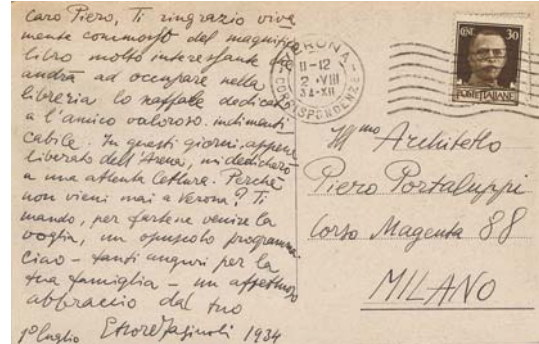 Caro Piero, Ti ringrazio viva
mente commosso del magnifico
libro molto interessante che
andrà ad occupare nella
libreria lo scaffale dedicato
a l'amico valoroso indimenti
cabile. In questi giorni, appena
liberato dell'Arena, mi dedicherò
a una attenta lettura. Perché
non vieni mai a Verona? Ti
mando, per fartene venire la
voglia, un opuscolo programma.
Ciao - tanti auguri per la
tua famiglia - un affettuoso
abbraccio dal tuo
1º luglio Ettore Fagiuoli 1934
VERONA
11-12
2 · VIII
34 - XII
CORRISPONDENZE
CENT. 30
POSTE ITALIANE
Architetto
Piero Portaluppi
Corso Magenta 88
MILANO